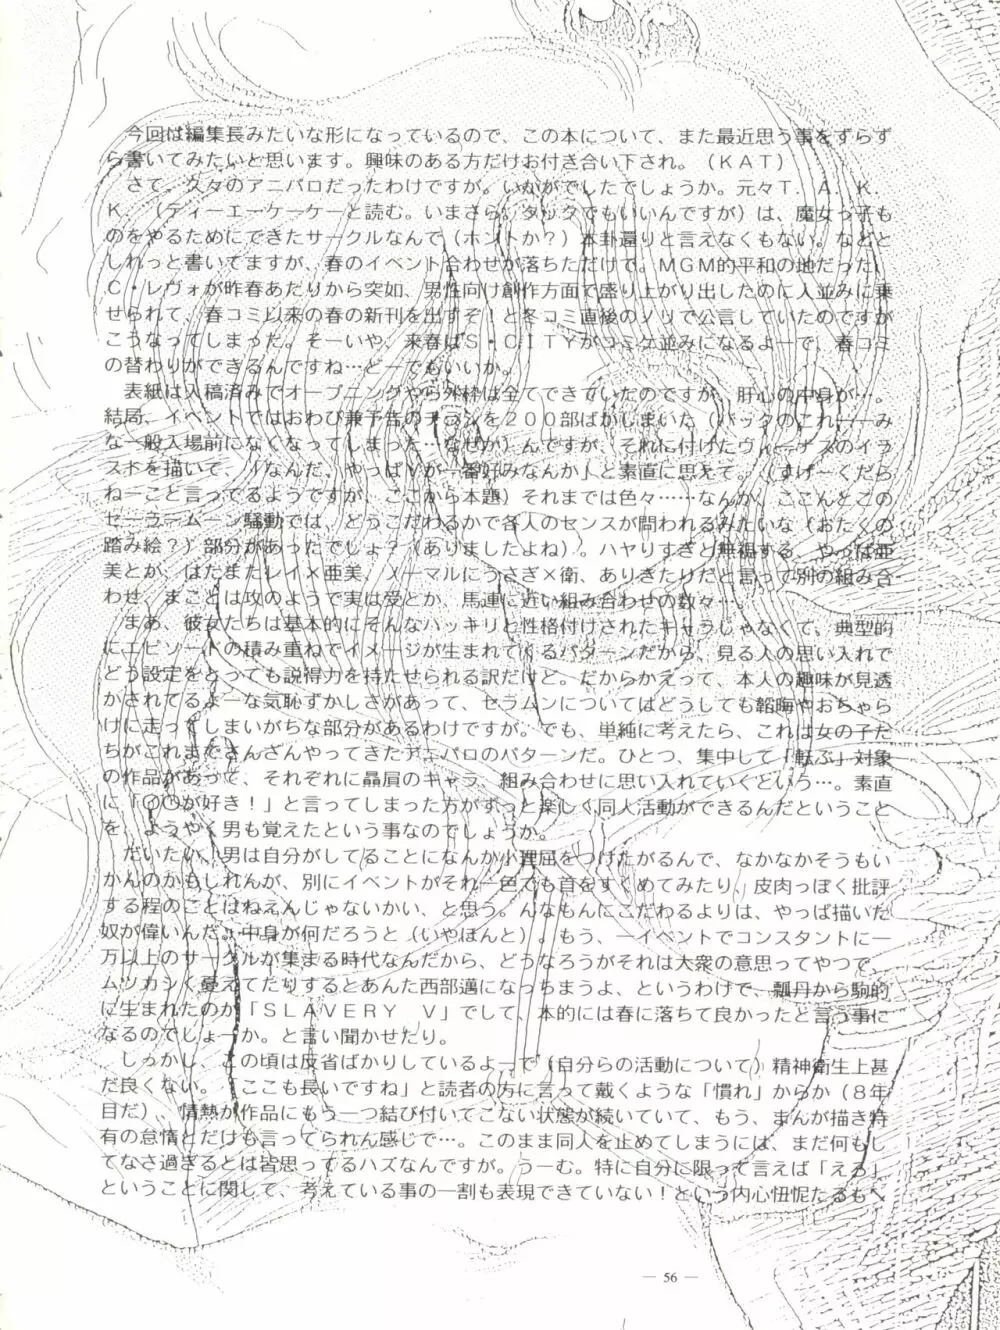 今回は編集長みたいな形になっているので、この本について、また最近思う事をずらず
ら書いてみたいと思います。興味のある方だけお付き合い下され。（ＫＡＴ）
さて、久々のアニパロだったわけですが。いかがでしたでしょうか。元々Ｔ．Ａ．Ｋ．
Ｋ．（ティーエーケーケーと読む。いまさら。タックでもいいんですが）は、魔女っ子も
のをやるためにできたサークルなんで（ホントか？）本卦還りと言えなくもない。などと
しれっと書いてますが、春のイベント合わせが落ちただけで。ＭＧＭ的平和の地だった、
Ｃ・レヴォが昨春あたりから突如、男性向け創作方面で盛り上がり出したのに人並みに乗
せられて、春コミ以来の春の新刊を出すぞ！と冬コミ直後のノリで公言していたのですが
こうなってしまった。そーいや、来春はＳ・ＣＩＴＹがコミケ並みになるよーで、春コミ
の替わりができるんですね…どーでもいいか。
表紙は入稿済みでオープニングやら外枠は全てできていたのですが、肝心の中身が…。
結局、イベントではおわび兼予告のチラシを２００部ばかしまいた（バックのこれ――み
な一般入場前になくなってしまった…なぜか）んですが、それに付けたヴィーナスのイラ
ストを描いて、「なんだ、やっぱＶが一番好みなんか」と素直に思えて。（すげーくだら
ねーこと言ってるようですが、ここから本題）それまでは色々……なんか、ここんとこの
セーラームーン騒動では、どうこだわるかで各人のセンスが問われるみたいな（おたくの
踏み絵？）部分があったでしょ？（ありましたよね）。ハヤりすぎと無視する、やっぱ亜
美とか、はたまたレイ×亜美、ノーマルにうさぎ×衛、ありきたりだと言って別の組み合
わせ、まことは攻のようで実は受とか、馬連に近い組み合わせの数々…。
まあ、彼女たちは基本的にそんなハッキリと性格付けされたキャラじゃなくて、典型的
にエピソードの積み重ねでイメージが生まれてくるパターンだから、見る人の思い入れで
どう設定をとっても説得力を持たせられる訳だけど。だからかえって、本人の趣味が見透
かされてるよーな気恥ずかしさがあって、セラムンについてはどうしても韜晦やおちゃら
けに走ってしまいがちな部分があるわけですが。でも、単純に考えたら、これは女の子た
ちがこれまでさんざんやってきたアニパロのパターンだ。ひとつ、集中して「転ぶ」対象
の作品があって、それぞれに贔屓のキャラ、組み合わせに思い入れていくという…。素直
に「○○が好き！」と言ってしまった方がずっと楽しく同人活動ができるんだということ
を、ようやく男も覚えたという事なのでしょうか。
だいたい、男は自分がしてることになんか小理屈をつけたがるんで、なかなかそうもい
かんのかもしれんが、別にイベントがそれ一色でも首をすくめてみたり、皮肉っぽく批評
する程のことはねえんじゃないかい、と思う。んなもんにこだわるよりは、やっぱ描いた
奴が偉いんだ。中身が何だろうと（いやほんと）。もう、一イベントでコンスタントに一
万以上のサークルが集まる時代なんだから、どうなろうがそれは大衆の意思ってやつで、
ムツカシく憂えてたりするとあんた西部邁になっちまうよ、というわけで、瓢丹から駒的
に生まれたのが「ＳＬＡＶＥＲＹ　Ｖ」でして、本的には春に落ちて良かったと言う事に
なるのでしょーか。と言い聞かせたり。
しっかし、この頃は反省ばかりしているよーで（自分らの活動について）精神衛生上甚
だ良くない。「ここも長いですね」と読者の方に言って戴くような「慣れ」からか（８年
目だ）、情熱が作品にもう一つ結び付いてこない状態が続いていて、もう、まんが描き特
有の怠惰とだけも言ってられん感じで…。このまま同人を止めてしまうには、まだ何もし
てなさ過ぎるとは皆思ってるハズなんですが。うーむ。特に自分に限って言えば「えろ」
ということに関して、考えている事の一割も表現できていない！という内心忸怩たるもへ
― 56 ―